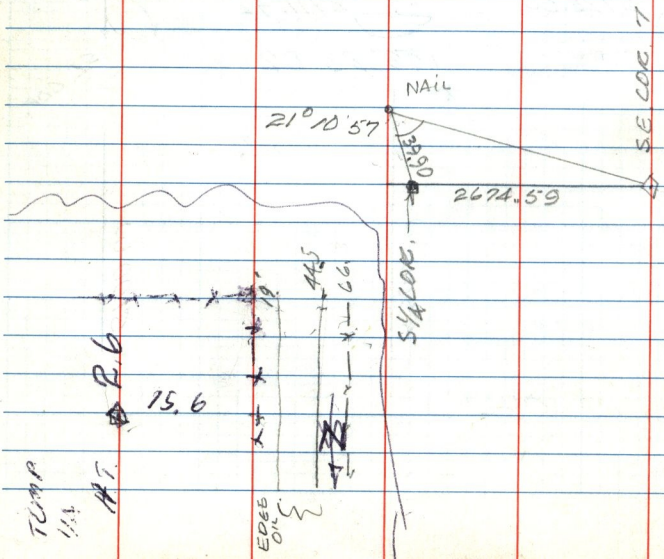 NAIL
21° 10' 57
39.90
2674.59
SE COR. 7
S 1/4 COR.
19'
44.5
66.
R.6
15.6
N
H.T.
TEMP
EDGE
OIL